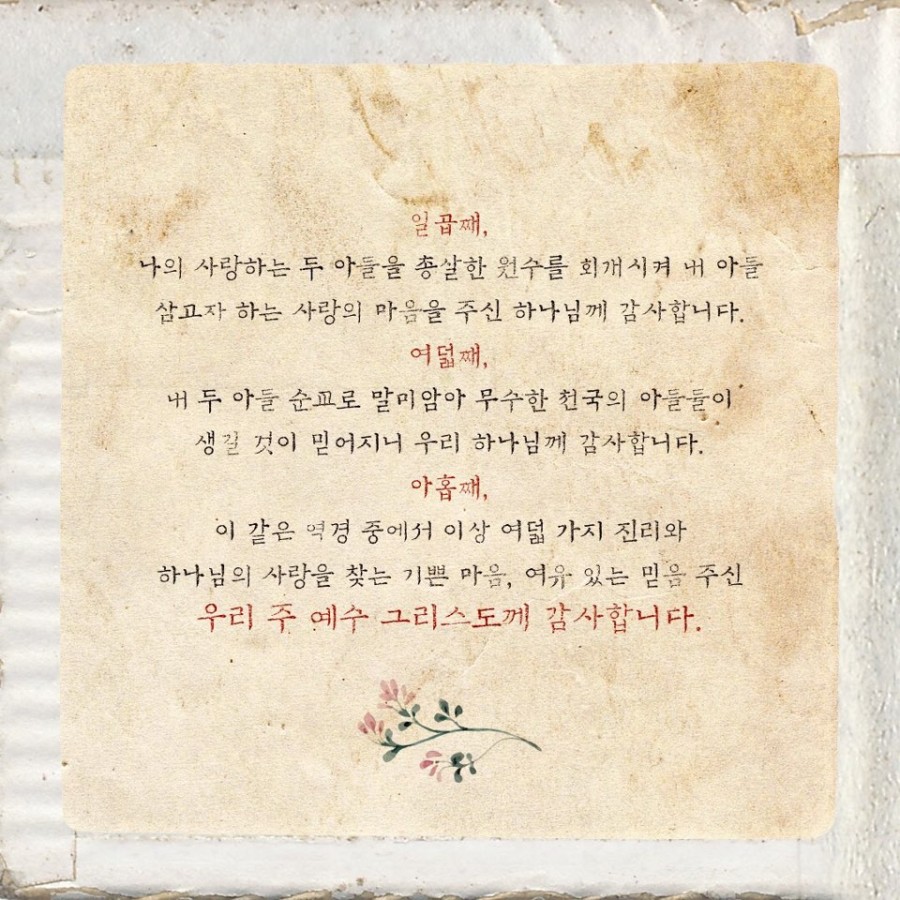 일곱째,
나의 사랑하는 두 아들을 총살한 원수를 회개시켜 내 아들
삼고자 하는 사랑의 마음을 주신 하나님께 감사합니다.
여덟째,
내 두 아들 순교로 말미암아 무수한 천국의 아들들이
생길 것이 믿어지니 우리 하나님께 감사합니다.
아홉째,
이 같은 역경 중에서 이상 여덟 가지 진리와
하나님의 사랑을 찾는 기쁜 마음, 여유 있는 믿음 주신
우리 주 예수 그리스도께 감사합니다.